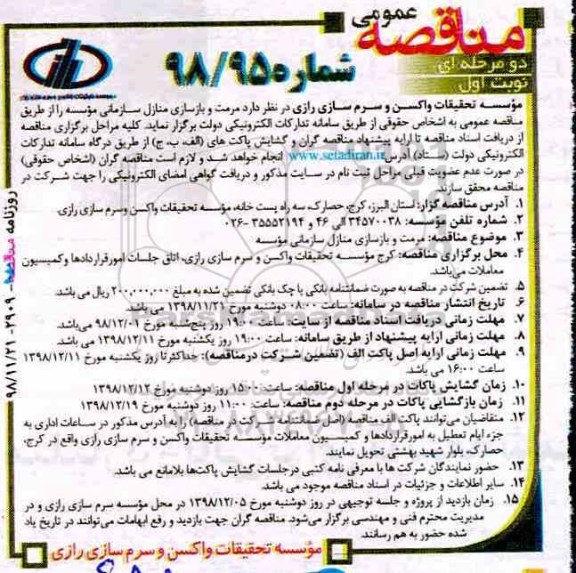 مناقصه عمومی
دو مرحله ای
نوبت اول
شماره ۹۸/۹۵
مؤسسه تحقیقات واکسن و سرم سازی رازی در نظر دارد مرمت و بازسازی منازل سازمانی مؤسسه را از طریق
مناقصه عمومی به اشخاص حقوقی از طریق سامانه تدارکات الکترونیکی دولت برگزار نماید. کلیه مراحل برگزاری مناقصه
از دریافت اسناد مناقصه تا ارایه پیشنهاد مناقصه گران و گشایش پاکت های (الف، ب، ج) از طریق درگاه سامانه تدارکات
الکترونیکی دولت (ستاد) آدرس www.setadiran.ir انجام خواهد شد و لازم است مناقصه گران (اشخاص حقوقی)
در صورت عدم عضویت قبلی مراحل ثبت نام در سایت مذکور و دریافت گواهی امضای الکترونیکی را جهت شرکت در
مناقصه محقق سازند.
۱. آدرس مناقصه گزار: استان البرز، کرج، حصارک، سه راه پست خانه، مؤسسه تحقیقات واکسن وسرم سازی رازی.
۲. شماره تلفن مؤسسه: ۳۴۵۷۰۰۳۸ الی ۴۶ و ۳۵۵۵۲۱۹۴ -۰۲۶
۳. موضوع مناقصه: مرمت و بازسازی منازل سازمانی مؤسسه
۴. محل برگزاری مناقصه: کرج مؤسسه تحقیقات واکسن و سرم سازی رازی، اتاق جلسات امورقراردادها وکمیسیون
معاملات می‌باشد.
۵. تضمین شرکت در مناقصه به صورت ضمانتنامه بانکی یا چک بانکی تضمین شده به مبلغ ۲۰۰,۰۰۰,۰۰۰ ریال می باشد.
۶. تاریخ انتشار مناقصه در سامانه: ساعت ۰۸:۰۰ دوشنبه مورخ ۱۳۹۸/۱۱/۲۱ می‌باشد.
۷. مهلت زمانی دریافت اسناد مناقصه از سایت: ساعت ۱۹:۰۰ روز پنج‌شنبه مورخ ۹۸/۱۲/۰۱ می‌باشد.
۸. مهلت زمانی ارایه پیشنهاد از طریق سامانه: ساعت ۱۹:۰۰ روز یکشنبه مورخ ۱۳۹۸/۱۲/۱۱ می باشد.
۹. مهلت زمانی ارایه اصل پاکت الف (تضمین شرکت درمناقصه): حداکثر تا روز یکشنبه مورخ ۱۳۹۸/۱۲/۱۱
ساعت ۱۶:۰۰ می باشد.
۱۰. زمان گشایش پاکات در مرحله اول مناقصه: ساعت ۱۵:۰۰ روز دوشنبه مورخ ۱۳۹۸/۱۲/۱۲
۱۱. زمان بازگشایی پاکات در مرحله دوم مناقصه: ساعت ۱۱:۰۰ روز دوشنبه مورخ ۱۳۹۸/۱۲/۱۹
۱۲. متقاضیان می‌توانند پاکت الف مناقصه (اصل ضمانتنامه شرکت در مناقصه) را به آدرس مذکور در ساعات اداری به
جزء ایام تعطیل به امور قراردادها و کمیسیون معاملات مؤسسه تحقیقات واکسن و سرم سازی رازی واقع در کرج،
حصارک، بلوار شهید بهشتی تحویل نمایند.
۱۳. حضور نمایندگان شرکت ها با معرفی نامه کتبی درجلسات گشایش پاکت‌ها بلامانع می باشد.
۱۴. سایر اطلاعات و جزئیات در اسناد مناقصه موجود می باشد.
۱۵. زمان بازدید از پروژه و جلسه توجیهی در روز دوشنبه مورخ ۱۳۹۸/۱۲/۰۵ در محل مؤسسه سرم سازی رازی و در
مدیریت محترم فنی و مهندسی برگزار می‌شود. مناقصه گران جهت بازدید و رفع ابهامات می‌توانند در تاریخ یاد
شده حضور به هم رسانند.
مؤسسه تحقیقات واکسن و سرم سازی رازی
روزنامه مناقصه - ۲۹۰۹ - ۹۸/۱۱/۲۱